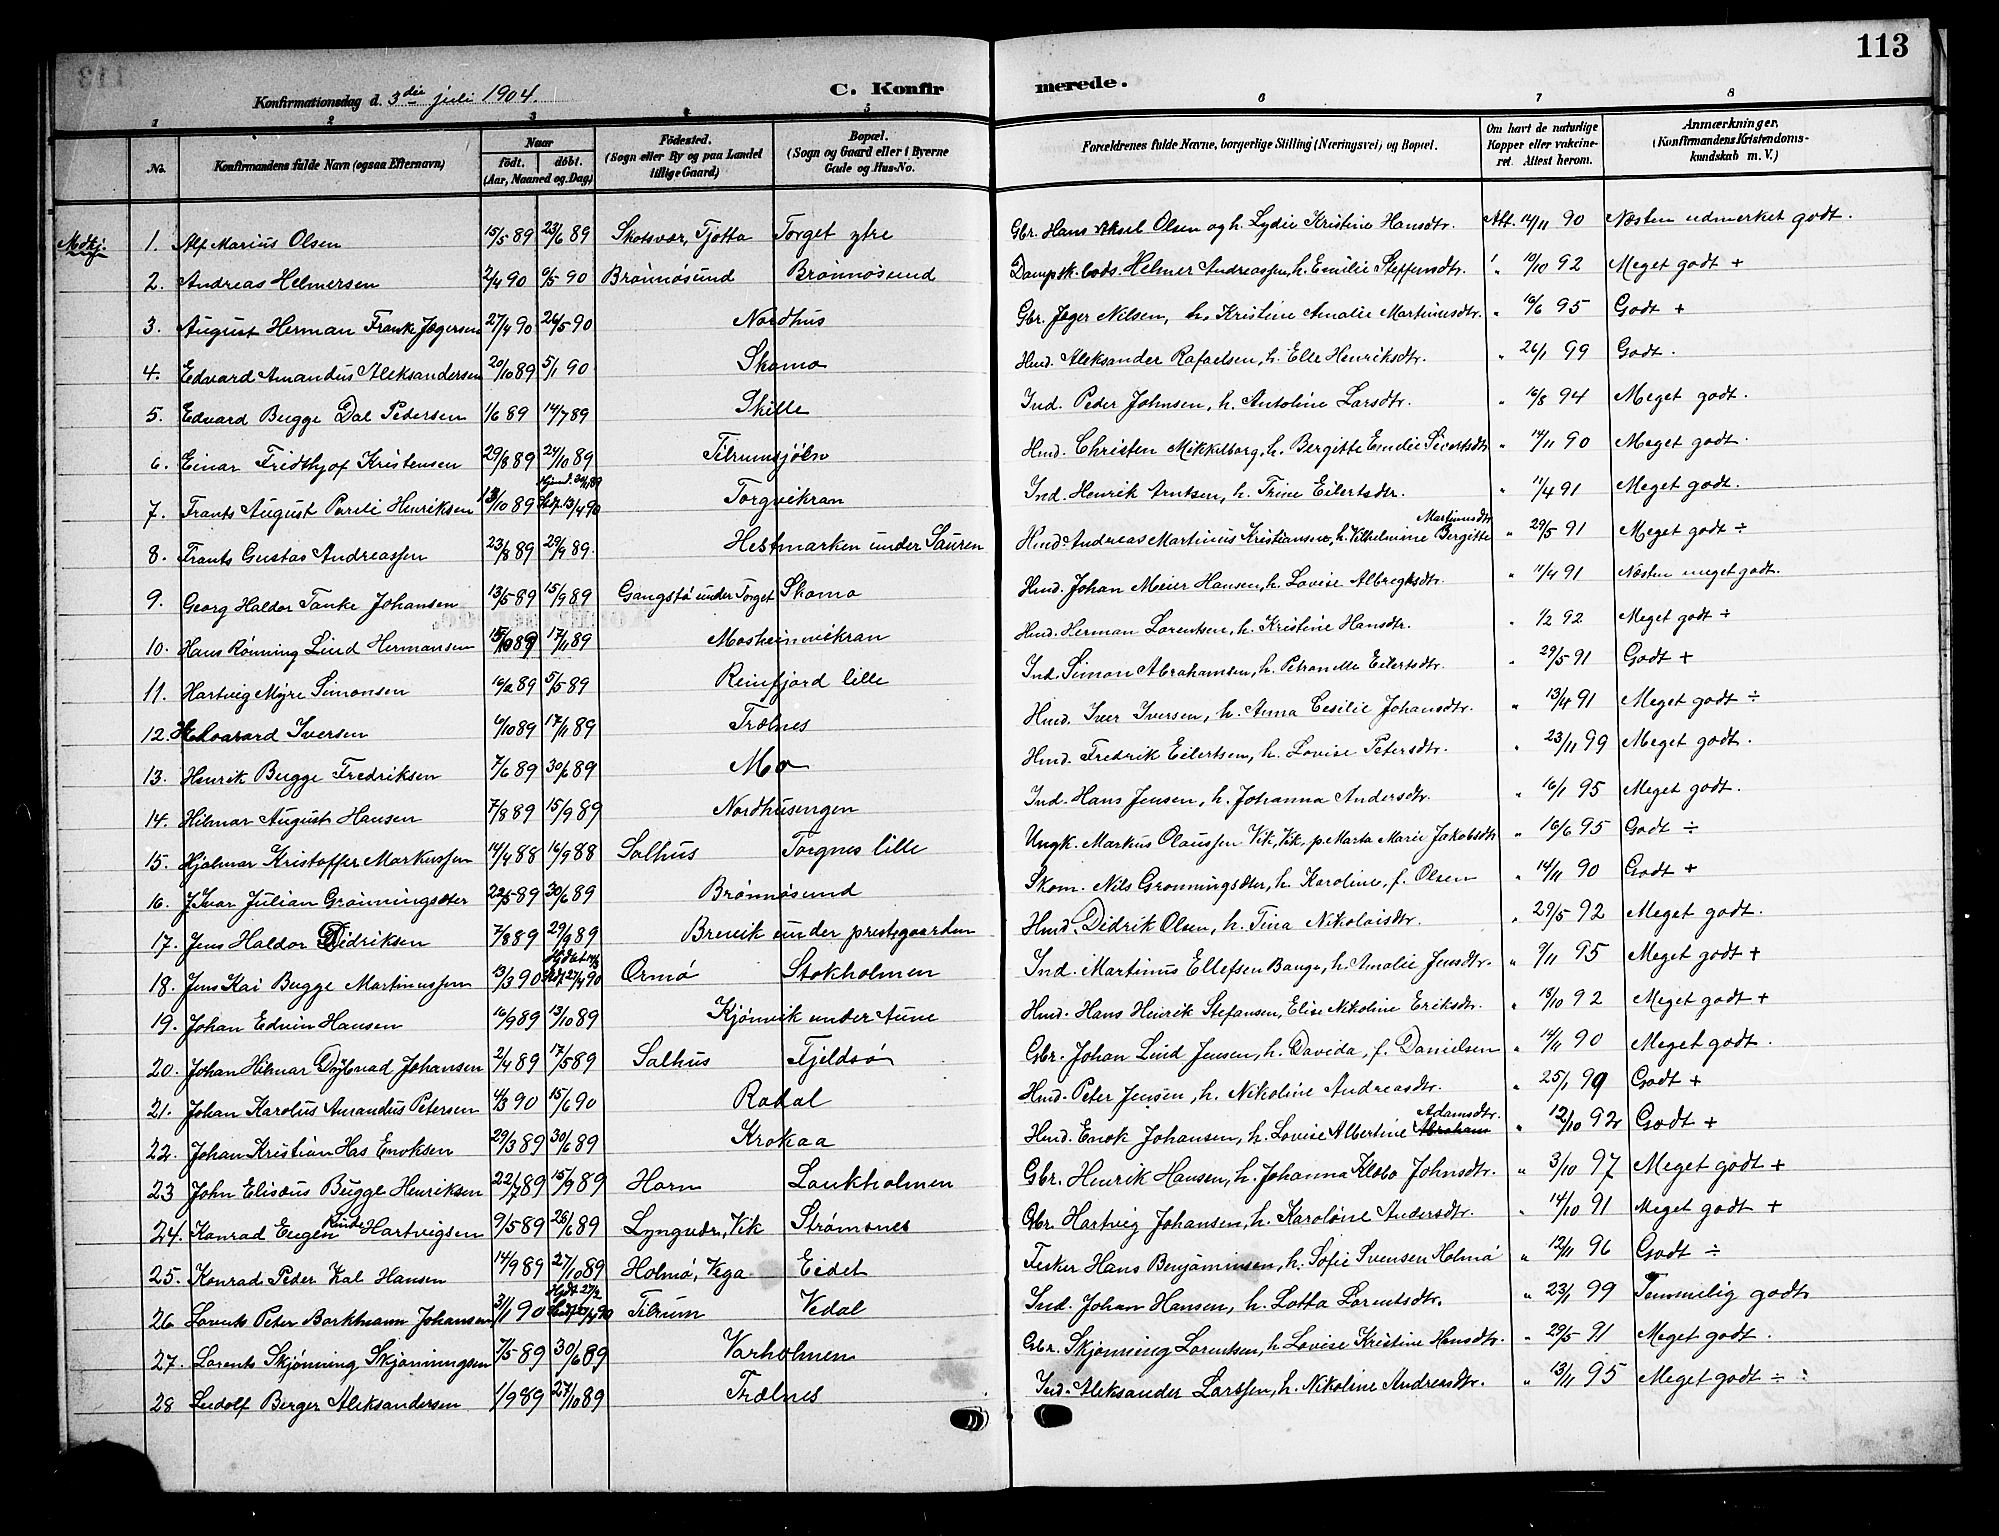 113
Konfirmationsdag d. 3die juli 1904.
C. Konfirmerede.
1 2 3 4 5 6 7 8
No. Konfirmandens fulde Navn (ogsaa Efternavn) Naar født. døbt. (Aar, Maaned og Dag) Fødested. (Sogn eller By og paa Landet tillige Gaard) Bopæl. (Sogn og Gaard eller i Byerne Gade og Hus-No. Forældrenes fulde Navne, borgerlige Stilling (Næringsvei) og Bopæl. Om havt de naturlige Kopper eller vakcineret. Attest herom. Anmærkninger, (Konfirmandens Kristendomskundskab m. V.)
1. Alf Marius Olsen 15/5 89 23/6 89 Skotsvær, Tjøtta Torget ytre Gbr. Hans Aksel Olsen og h. Lydie Kristine Hansdtr. Att. 14/11 90 Næsten udmerket godt.
2. Andreas Helmersen 2/4 90 /5 90 Brønnøsund Brønnøsund Dampsk. Helmer Andreassen, h. Emilie Steffensdtr. " 12/10 92 Meget godt +
3. August Herman Frank Jøgersen 27/4 90 26/5 90 Nordhus Gbr. Jøger Nilsen, h. Kristine Amalie Martinusdtr. " 16/6 95 Godt +
4. Edvard Amandus Aleksandersen 20/10 89 5/1 90 Skomo Hmd. Aleksander Rafaelsen, h. Elle Henriksdtr. " 26/1 99 Godt.
5. Edvard Bugge Dal Pedersen 1/6 89 14/7 89 Skille Ind. Peder Johnsen, h. Antoline Larsdtr. " 16/8 94 Meget godt.
6. Einar Fridthjof Kristensen 29/8 89 24/10 89 Tilrumsjøen Hmd. Christen Mikkelborg, h. Bergitte Emilie Sivertsdtr " 14/11 90 Meget godt.
7. Frants August Pareli Henriksen /10 89 13/4 90 Torgvikran Ind. Henrik Arntsen, h. Trine Eilertsdtr. " 11/4 91 Meget godt.
8. Frants Gustav Andreassen 23/8 89 29/9 89. Hestmarken under Sauren Hmd. Andreas Martinus Kristiansen, h. Vilhelmine Bergitte Martinusdtr " 29/5 91 Meget godt ÷
9. Georg Haldor Tanke Johansen 13/5 89 15/9 89 Gangstø under Torget Skomo Hmd. Johan Meier Hansen, h. Lovise Albregtsdtr. " 11/4 91 Næsten meget godt.
10. Hans Rønning Lind Hermansen 15/10 89 17/11 89 Mosheimvikran Hmd. Herman Lorentsen, h. Kristine Hansdtr. " 1/2 92 Meget godt ÷
11. Hartvig Myre Simonsen 16/2 89 5/5 89 Reinfjord lille Ind. Simon Abrahamsen, h. Petronelle Eilertsdtr. " 29/5 91 Godt +
12. Havard Iversen 6/10 89 17/11 89 Trælnes Hmd. Iver Iversen, h. Anna Cesilie Johansdtr. " 13/4 91 Meget godt ÷
13. Henrik Bugge Fredriksen 7/6 89 30/6 89 Mo Hmd. Fredrik Eilertsen, h. Lovise Petersdtr. " 23/11 99 Meget godt.
14. Hilmar August Hansen 7/8 89 15/9 89 Nordhusengen Ind. Hans Jensen, h. Johanna Andersdtr. " 16/1 95 Meget godt.
15. Hjalmar Kristoffer Markussen 14/4 88 16/9 88 Salhus Torgnes lille Ungk. Markus Olaussen Vik, Vik, p. Marta Marie Jakobsdtr " 16/6 95 Godt ÷
16. Ivar Julian Grønningsæter 22/5 89 30/6 89 Brønnøsund Skom. Nils Grønningsæter, h. Karoline, f. Olsen " 14/11 90 Godt +
17. Jens Haldor Didriksen 7/8 89 29/9 89 Brevik under prestegaarden Hmd. Didrik Olsen, h. Tina Nikolaisdtr. " 29/5 92 Meget godt.
18. Jens Kai Bugge Martinussen 13/3 90 27/4 90 Ormø Stokholmen Ind. Martinus Ellefsen Bauge, h. Amalie Jensdtr. " 9/11 95 Meget godt +
19. Johan Edvin Hansen 16/9 89 13/10 89 Kjønvik under Aune Hmd. Hans Henrik Stefansen, Elise Nikoline Eriksdtr. " 18/10 92 Meget godt +
20. Johan Hilmar Johansen 2/4 89 17/5 89 Salhus Fjeldsø Gbr. Johan Lind Jensen, h. Davida, f. Danielsen " 14/11 90 Meget godt.
21. Johan Karolus Amandus Petersen 4/3 90 15/6 90 Rødal Hmd. Peter Jensen, h. Nikoline Andreasdtr. " 25/1 99 Godt +
22. Johan Kristian Has Enoksen 29/3 89 30/6 89 Krokaa Hmd. Enok Johansen, h. Lovise Albertine Adamsdtr. " 12/10 92 Godt +
23 John Elisæus Bugge Henriksen 22/7 89 15/9 89 Horn Laukholmen Gbr. Henrik Hansen, h. Johanna Klobo Johnsdtr. " 3/10 97 Meget godt +
24. Konrad Eugen Hartvigsen 9/5 89 26/6 89 Lyngvær, Vik Strømsnes Gbr. Hartvig Johansen, h. Karoline Andersdtr. " 14/10 91 Meget godt +
25. Konrad Peder Kal Hansen 14/9 89 27/10 89 Holmø, Vega Eidet Fisker Hans Benjaminsen, h. Sofie Svensen Holmø " 12/11 96 Godt ÷
26 Lorents Peter Borkmann Johansen 31/1 90 Tilrum Vedal Ind. Johan Hansen, h. Lotta Lorentsdtr. " 23/1 99 Temmelig godt
27. Lorents Skjønning Skjønningsen 7/5 89 30/6 89 Varholmen Gbr. Skjønning Lorentsen, h. Lovise Kristine Hansdtr. " 29/5 91 Meget godt.
28 Ludolf Berger Aleksandersen 1/9 89 27/10 89 Trælnes Ind. Aleksander Larssen, h. Nikoline Andreasdtr. " 13/11 95 Meget godt ÷